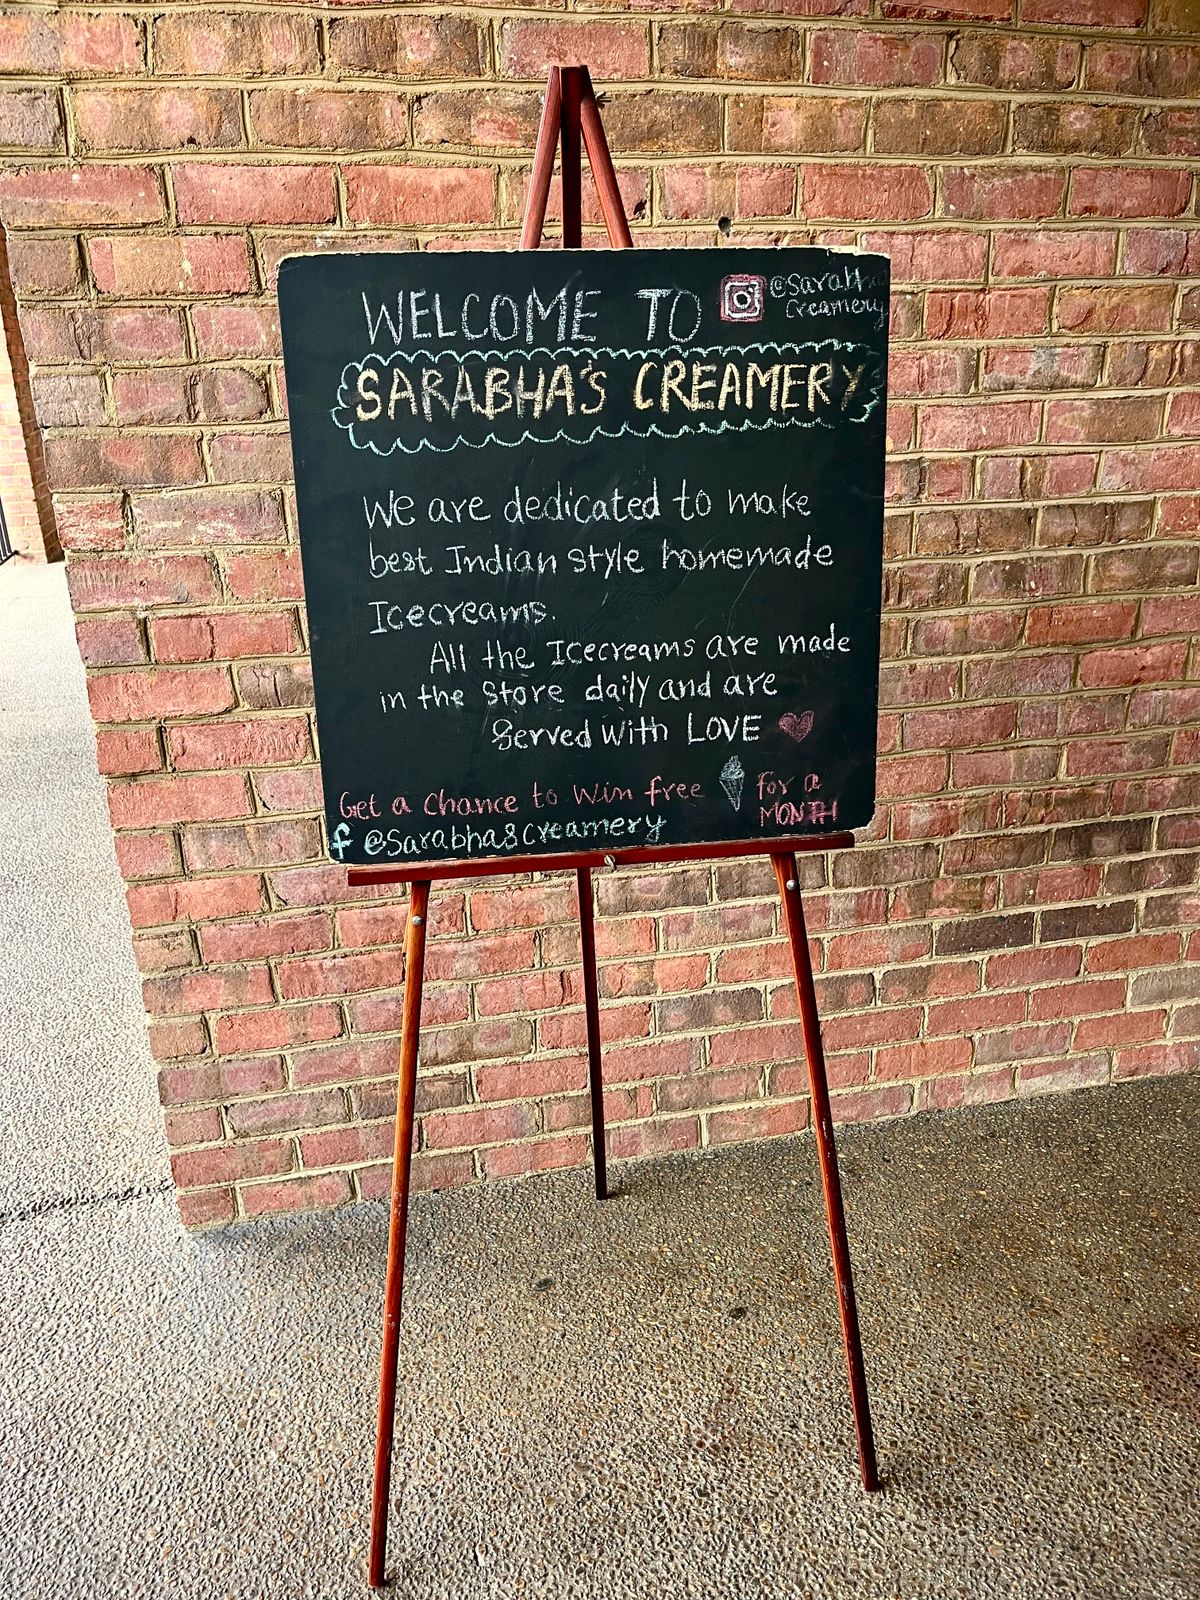 WELCOME TO
@Sarabha
Creamery
SARABHA'S CREAMERY
We are dedicated to make
best Indian style homemade
Icecreams.
All the Icecreams are made
in the store daily and are
Served with LOVE
Get a chance to win free for a
MONTH
f @SarabhasCreamery